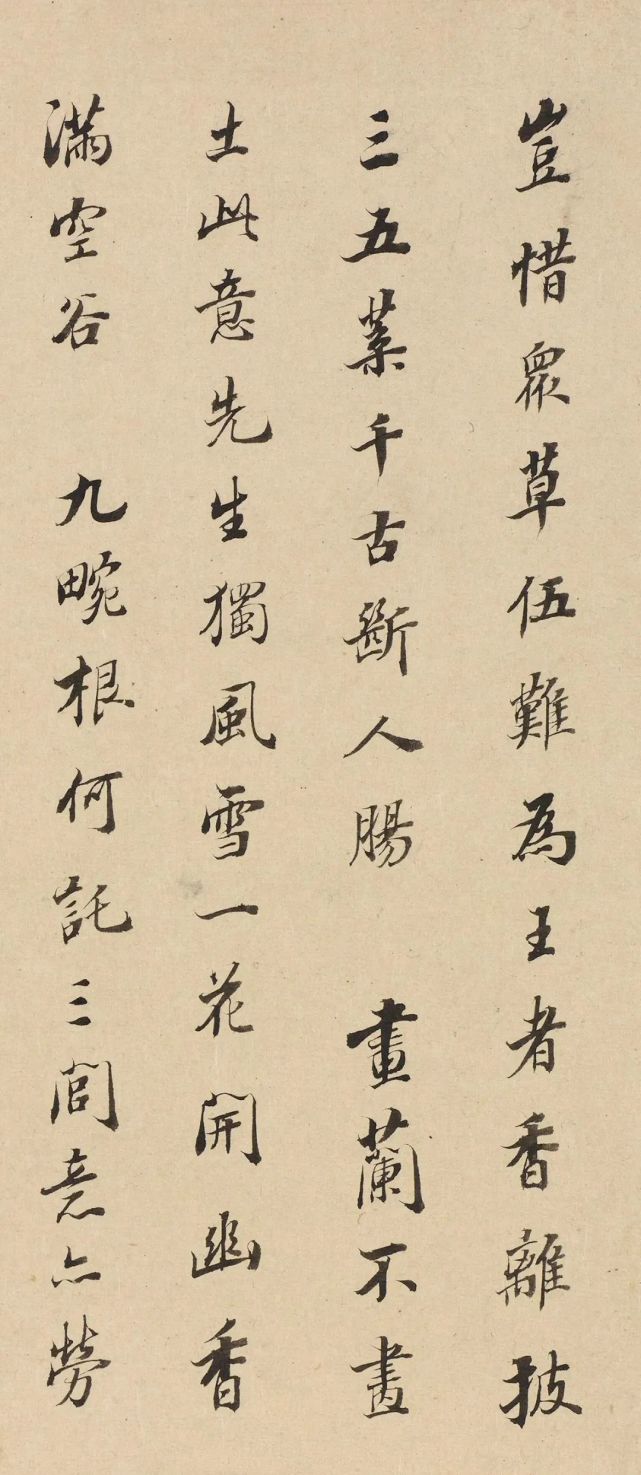 豈惜眾草伍難為王者香離披
三五葉千古斷人腸 畫蘭不畫
土此意先生獨風雪一花開幽香
滿空谷 九畹根何託三閭意亦勞